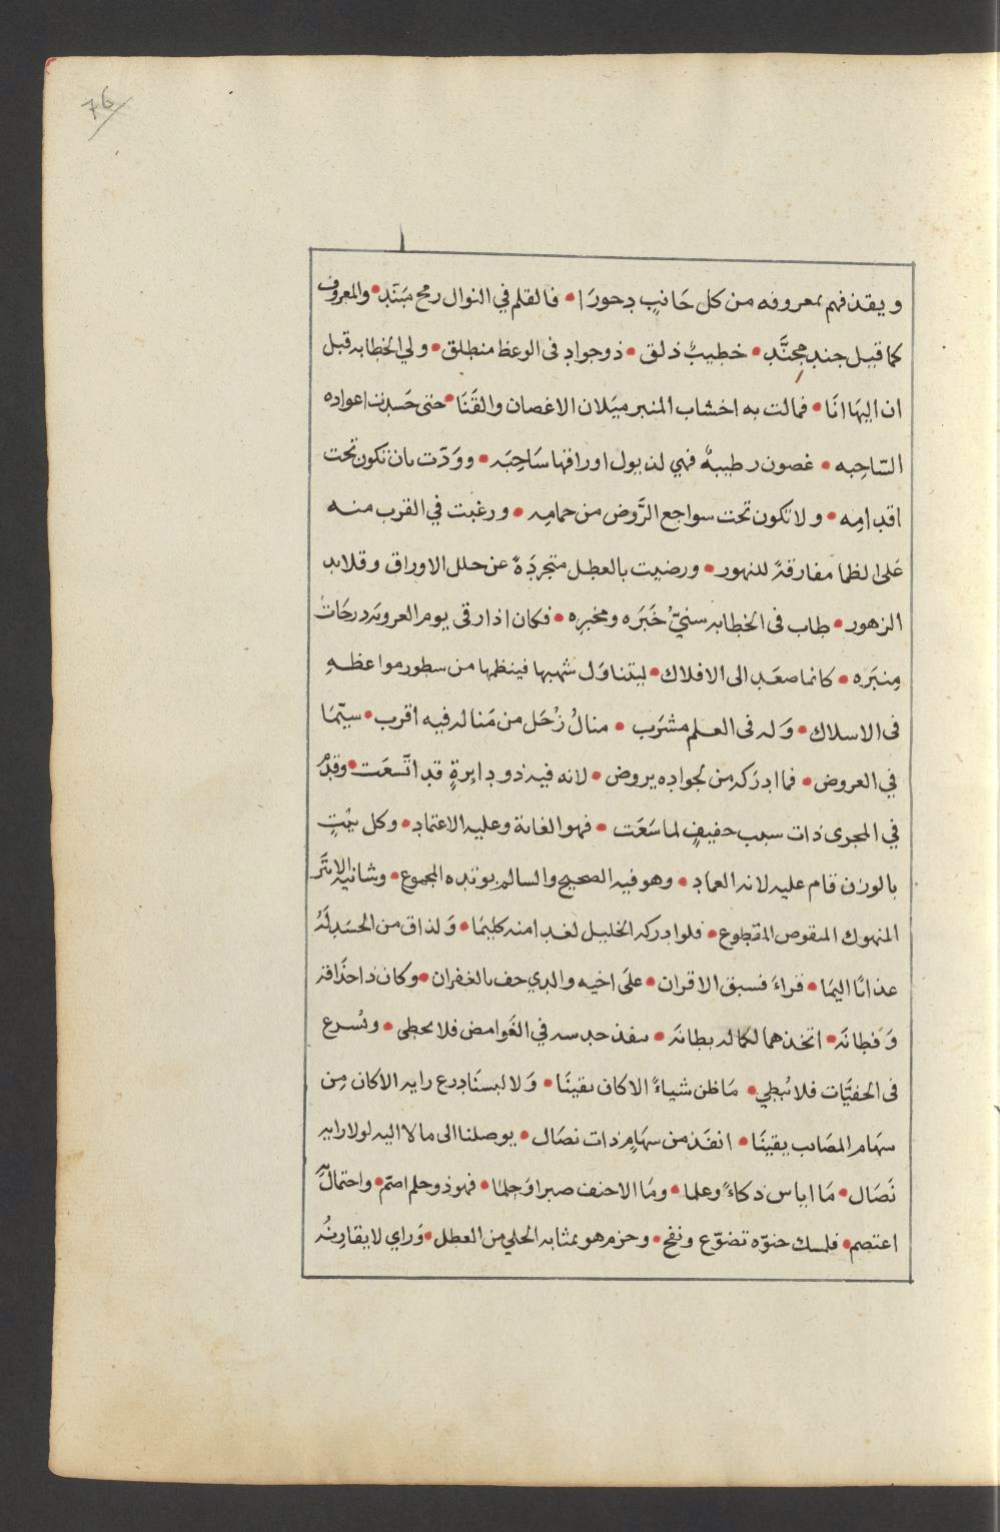 76
ويقذفهم بمعروفه من كل جَانبٍ دحورَا • فالقلم في النوال رمح مبَنّدٍ • والمعروف
كما قيل جندٍ مجنَّدٍ • خطيبٌ ذلق • ذوجوادٍ فى الوعظ منطلق • ولي الخطابه قبل
ان اليهَا انَا • فمالت به اخشاب المنبر ميَلان الاغصان والقَنَا • حتى حَسدت اعواده
السّاحِبه • غصون رطيبهٌ فهي لذبول اوراقها سَاحِبَه • ووَدّت بان تكون تحت
اقدامِه • ولا تكون تحت سواجع الرَّوض من حمامِه • ورغبت في القرب منه
عَلى الظما مفارقةً للنهور • ورضيت بالعطل متجردَةً عن حلل الاوراق وقلايد
الزهور • طاب فى الخطابه سنيّ خَبَره ومخبرِه • فكان اذا رقى يوم العروبَه درجَات
مِنبَرِه • كانما صعَد الى الافلاك • ليتناوَل شهبها فينظمها من سطور مواعظهِ
فى الاسلاك • وَله فى العلم مشرَب • منالُ زُحَل من مَناله فيه اقرب • سيّمَا
في العروض • فما ادرَكه من لجوادِه يروض • لانه فيه ذو دايرةٍ قد اتّسعَت • وقدمٌ
في المجرى ذات سبب خفيفٍ لما سَعَت • فهو الغاية وعليه الاعتماد • وكل بيْتٍ
بالوزن قام عليه لانه العماد • وهو فيه الصحيح والسالم بوتده المجموع • وشانيه الابتَر
المنهوك المنقوص المقطوع • فلو ادركه الخليل لغدا منه كليمَا • وَلذاق من الحسَد لَهُ
عذابًا اليمَا • قراءَ فسبق الاقران • علَى اخيه والدي حف بالغفران • وكان ذا حذَاقه
وَفطانَه • اتخذهما لكماله بطانَه • ينفذ حدسه في الغَوامض فلا يخطى • ويُسرع
فى الخفيَّات فلا يُبطي • مَا ظن شياءً الا كاف يقينَا • وَلا لبسنَا درع رايه الا كان مِن
سهَام المصَايب يقينَا • انفَذ من سهَامٍ ذات نصَال • يوصلنا الى ما لا اليه لولا رايه
نَصَال • مَا اياس ذكاءً وعلما • ومَا الاحنف صبرا وَحلمَا • فهو ذو حلم اصمّ • واحتمالٌ
اعتصم • فلمسك حنوّه تضوّع ونفح • وحزم هو بمثابه الحلي من العطل • وَراي لا يقاربُه